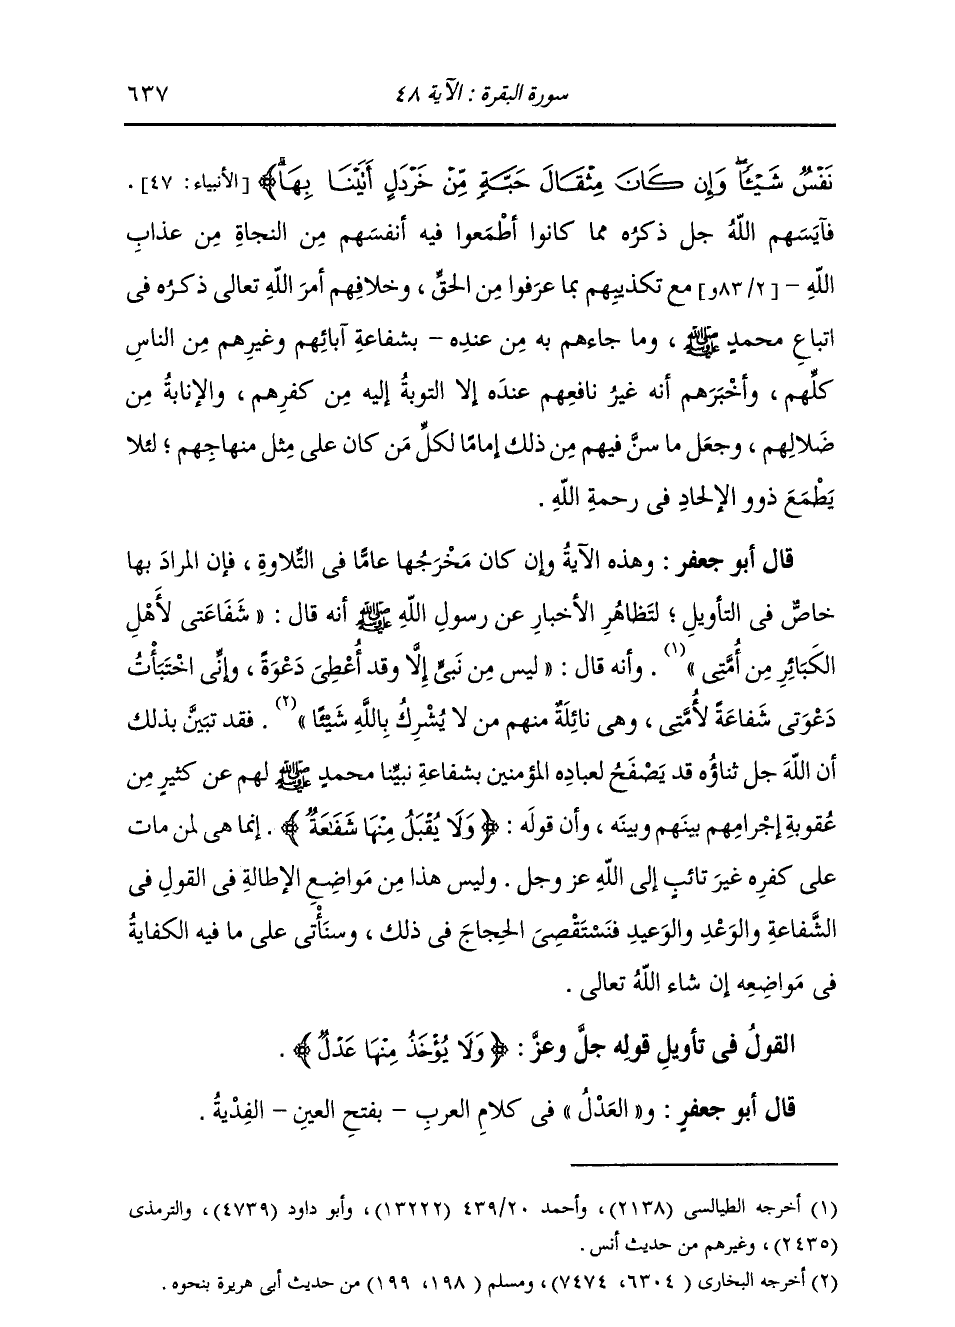 سورة البقرة : الآية ٤٨ ٦٣٧
نَفْسٌ شَيْـًٔا ۖ وَإِن كَانَ مِثْقَالَ حَبَّةٍ مِّنْ خَرْدَلٍ أَتَيْنَا بِهَا ۗ﴾ [الأنبياء: ٤٧] .
فآيَسَهم اللَّهُ جل ذكرُه مما كانوا أطْمَعوا فيه أنفسَهم مِن النجاةِ مِن عذابِ
اللَّهِ - [٨٣/٢و] مع تكذيبِهم بما عرَفوا مِن الحقِّ ، وخلافِهم أمرَ اللَّهِ تعالى ذكرُه فى
اتباعِ محمدٍ ﷺ ، وما جاءهم به مِن عندِه - بشفاعةِ آبائِهم وغيرِهم مِن الناسِ
كلِّهم ، وأخْبَرَهم أنه غيرُ نافعِهم عندَه إلا التوبةُ إليه مِن كفرِهم ، والإنابةُ مِن
ضَلالِهم ، وجعَل ما سنَّ فيهم مِن ذلك إمامًا لكلِّ مَن كان على مِثل منهاجِهم ؛ لئلا
يَطْمَعَ ذوو الإلحادِ فى رحمةِ اللَّهِ .
قال أبو جعفر : وهذه الآيةُ وإن كان مَخْرَجُها عامًّا فى التِّلاوةِ ، فإن المرادَ بها
خاصٌّ فى التأويلِ ؛ لتَظاهُرِ الأخبارِ عن رسولِ اللَّهِ ﷺ أنه قال : « شَفَاعَتى لأَهْلِ
الكَبَائِرِ مِن أُمَّتِى »(١) . وأنه قال : « ليس مِن نَبىٍّ إلَّا وقد أُعْطِىَ دَعْوَةً ، وإنِّى اخْتَبَأْتُ
دَعْوَتى شَفاعَةً لأُمَّتِى ، وهى نائِلَةٌ منهم من لا يُشْرِكُ بِاللَّهِ شَيْئًا »(٢) . فقد تبَيَّن بذلك
أن اللَّهَ جل ثناؤُه قد يَصْفَحُ لعبادِه المؤمنين بشفاعةِ نبيِّنا محمدٍ ﷺ لهم عن كثيرٍ مِن
عُقوبةِ إجْرامِهم بينَهم وبينَه ، وأن قولَه : ﴿وَلَا يُقْبَلُ مِنْهَا شَفَٰعَةٌ﴾ . إنما هى لمن مات
على كفرِه غيرَ تائبٍ إلى اللَّهِ عز وجل . وليس هذا مِن مَواضِعِ الإطالةِ فى القولِ فى
الشَّفاعةِ والوَعْدِ والوعيدِ فنَسْتَقْصِىَ الحِجاجَ فى ذلك ، وسنَأْتى على ما فيه الكفايةُ
فى مَواضِعِه إن شاء اللَّهُ تعالى .
القولُ فى تأويلِ قولِه جلَّ وعزَّ : ﴿وَلَا يُؤْخَذُ مِنْهَا عَدْلٌ﴾ .
قال أبو جعفرٍ : و« العَدْلُ » فى كلامِ العربِ - بفتحِ العينِ - الفِدْيةُ .
(١) أخرجه الطيالسى (٢١٣٨)، وأحمد ٤٣٩/٢٠ (١٣٢٢٢)، وأبو داود (٤٧٣٩)، والترمذى
(٢٤٣٥)، وغيرهم من حديث أنس .
(٢) أخرجه البخارى ( ٦٣٠٤، ٧٤٧٤)، ومسلم ( ١٩٨، ١٩٩) من حديث أبى هريرة بنحوه .